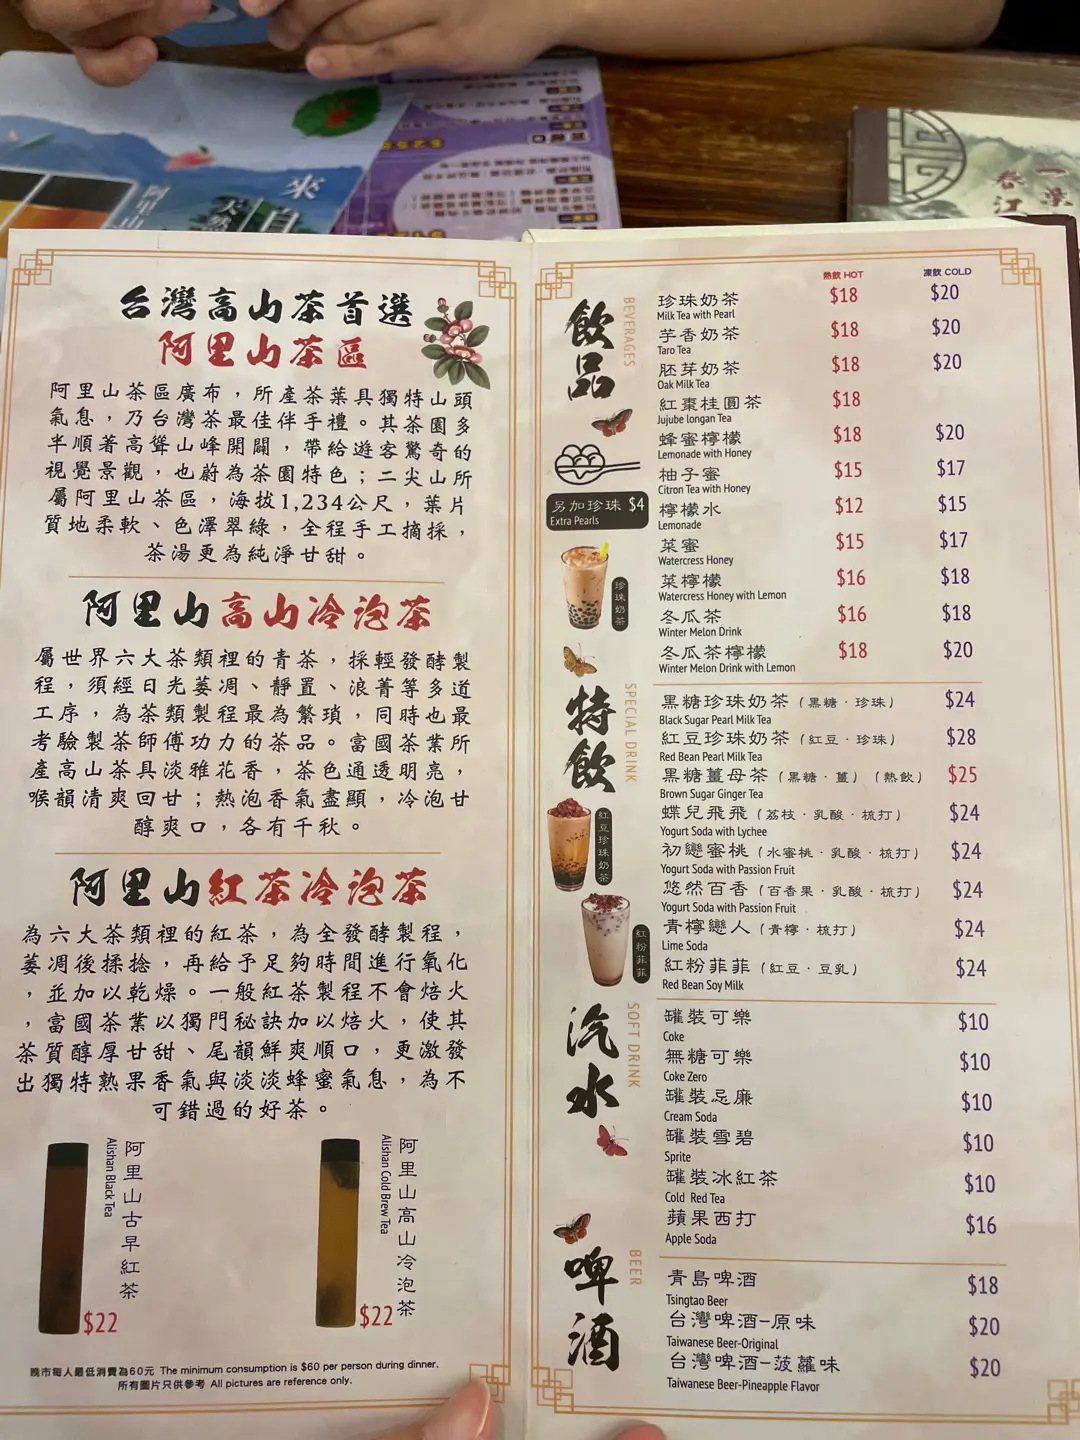 來自
天然
阿里山
一葉
春江
台灣高山茶首選
阿里山茶區
阿里山茶區廣布，所產茶葉具獨特山頭
氣息，乃台灣茶最佳伴手禮。其茶園多
半順著高聳山峰開闢，帶給遊客驚奇的
視覺景觀，也蔚為茶園特色；二尖山所
屬阿里山茶區，海拔1,234公尺，葉片
質地柔軟、色澤翠綠，全程手工摘採，
茶湯更為純淨甘甜。
阿里山高山冷泡茶
屬世界六大茶類裡的青茶，採輕發酵製
程，須經日光萎凋、靜置、浪菁等多道
工序，為茶類製程最為繁瑣，同時也最
考驗製茶師傅功力的茶品。富國茶業所
產高山茶具淡雅花香，茶色通透明亮，
喉韻清爽回甘；熱泡香氣盡顯，冷泡甘
醇爽口，各有千秋。
阿里山紅茶冷泡茶
為六大茶類裡的紅茶，為全發酵製程，
萎凋後揉捻，再給予足夠時間進行氧化
，並加以乾燥。一般紅茶製程不會焙火
，富國茶業以獨門秘訣加以焙火，使其
茶質醇厚甘甜、尾韻鮮爽順口，更激發
出獨特熟果香氣與淡淡蜂蜜氣息，為不
可錯過的好茶。
阿里山古早紅茶
Alishan Black Tea
$22
阿里山高山冷泡茶
Alishan Cold Brew Tea
$22
晚市每人最低消費為60元 The minimum consumption is $60 per person during dinner.
所有圖片只供參考 All pictures are reference only.
熱飲 HOT 凍飲 COLD
飲品
BEVERAGES
珍珠奶茶 $18 $20
Milk Tea with Pearl
芋香奶茶 $18 $20
Taro Tea
胚芽奶茶 $18 $20
Oak Milk Tea
紅棗桂圓茶 $18
Jujube longan Tea
蜂蜜檸檬 $18 $20
Lemonade with Honey
柚子蜜 $15 $17
Citron Tea with Honey
檸檬水 $12 $15
Lemonade
菜蜜 $15 $17
Watercress Honey
菜檸檬 $16 $18
Watercress Honey with Lemon
冬瓜茶 $16 $18
Winter Melon Drink
冬瓜茶檸檬 $18 $20
Winter Melon Drink with Lemon
另加珍珠 $4
Extra Pearls
珍珠奶茶
特飲
SPECIAL DRINK
黑糖珍珠奶茶（黑糖·珍珠） $24
Black Sugar Pearl Milk Tea
紅豆珍珠奶茶（紅豆·珍珠） $28
Red Bean Pearl Milk Tea
黑糖薑母茶（黑糖·薑）（熱飲） $25
Brown Sugar Ginger Tea
蝶兒飛飛（荔枝·乳酸·梳打） $24
Yogurt Soda with Lychee
初戀蜜桃（水蜜桃·乳酸·梳打） $24
Yogurt Soda with Passion Fruit
悠然百香（百香果·乳酸·梳打） $24
Yogurt Soda with Passion Fruit
青檸戀人（青檸·梳打） $24
Lime Soda
紅粉菲菲（紅豆·豆乳） $24
Red Bean Soy Milk
紅豆珍珠奶茶
紅粉菲菲
汽水
SOFT DRINK
罐裝可樂 $10
Coke
無糖可樂 $10
Coke Zero
罐裝忌廉 $10
Cream Soda
罐裝雪碧 $10
Sprite
罐裝冰紅茶 $10
Cold Red Tea
蘋果西打 $16
Apple Soda
啤酒
BEER
青島啤酒 $18
Tsingtao Beer
台灣啤酒–原味 $20
Taiwanese Beer-Original
台灣啤酒–菠蘿味 $20
Taiwanese Beer-Pineapple Flavor